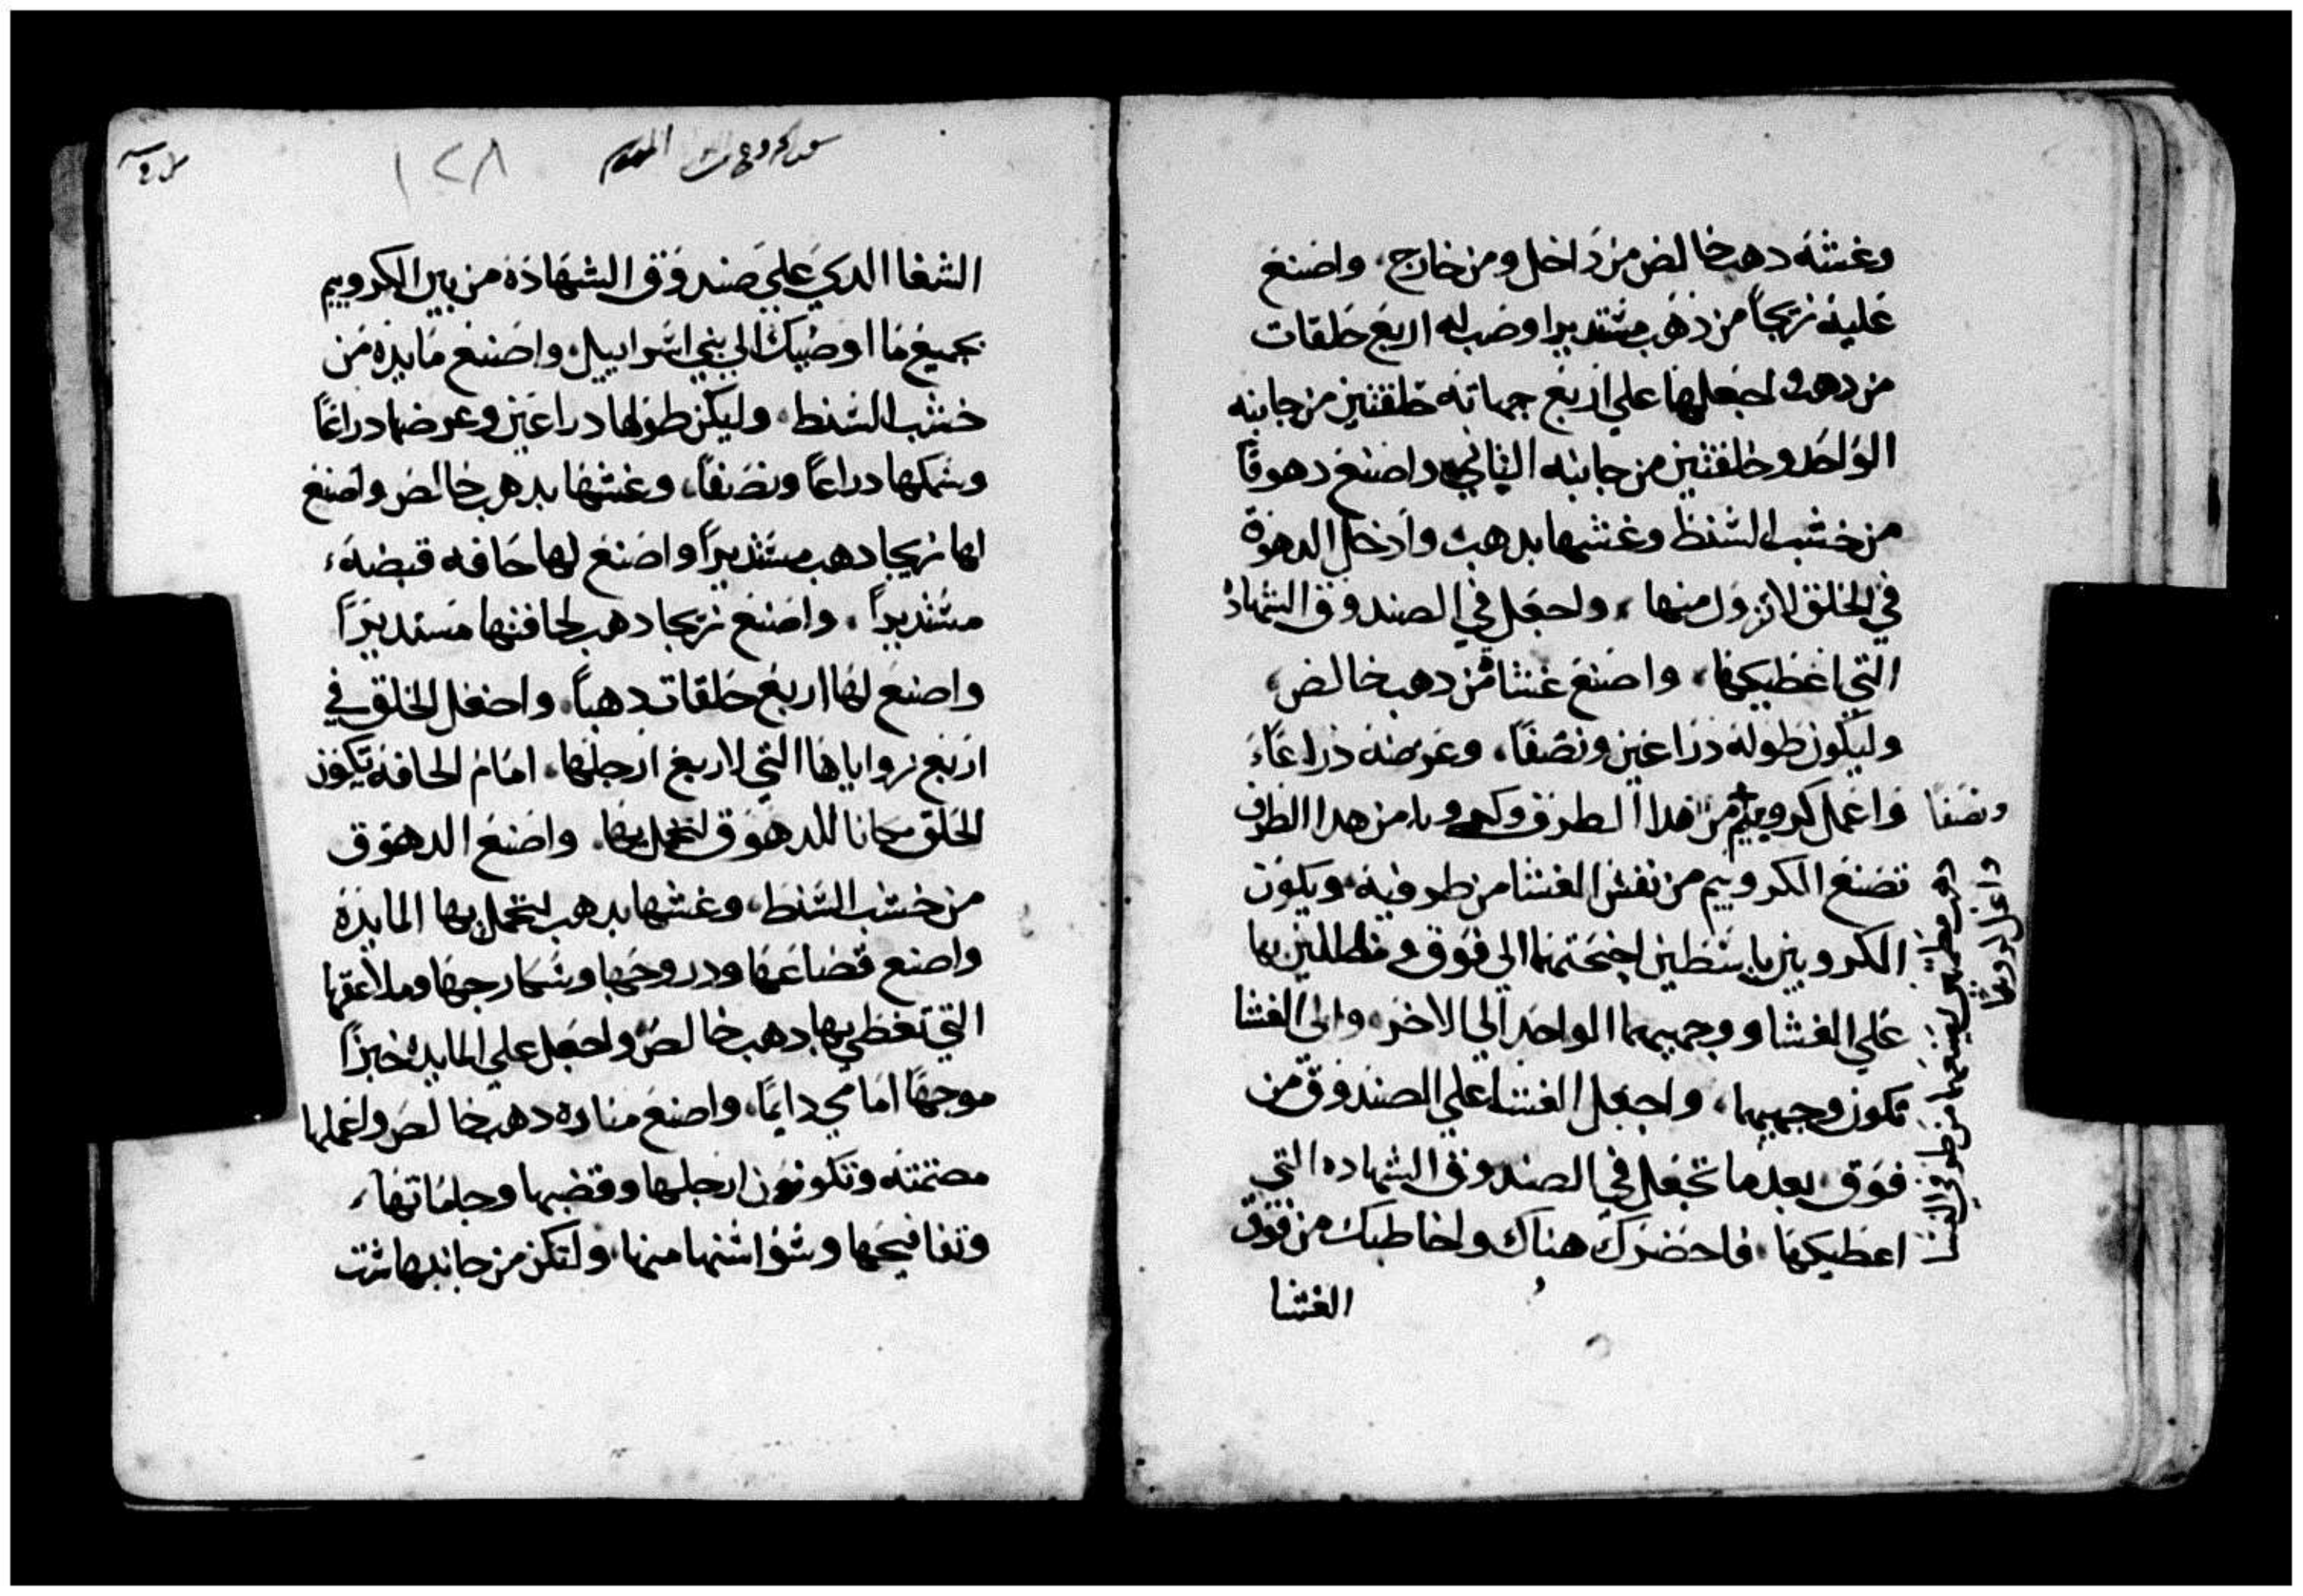 وغشه دهب خالص من داخل ومن خارج، واصنع
عليه زيجاً من دهب مستديرا وصب له اربع حلقات
من دهب واجعلها علي اربع جهاته حلقتين من جانبه
الواحد وحلقتين من جانبه الثاني واصنع دهوقا
من خشب السنط وغشها بدهب وادخل الدهوق
في الحلق لا تزول منها، واجعل في الصندوق الشهاده
التي اعطيكها، واصنع غشا من دهب خالص،
وليكون طوله دراعين ونصفاً، وعرضه دراعاً،
ونصفا
واعمل كروبيم من هدا الطرف وكروبا من هدا الطرف
تصنع الكروبيم من نفس الغشا من طرفيه ويكون
الكروبين باسطين اجنحتهما الي فوق مظللين بها
علي الغشا ووجهيهما الواحد الي الاخر، والي الغشا
تكون وجهيهما، واجعل الغشا علي الصندوق من
فوق بعد ما تجعل في الصندوق الشهاده التي
اعطيكها، فاحضرك هناك واخاطبك من فوق
الغشا
واعمل كروبين
دهب تصنعهما من طرفي الغشا
١٢٨
الشفا الدي علي صندوق الشهادة من بين الكروبيم
بجميع ما اوصيك الي بني اسراييل، واصنع مايدة من
خشب السنط، وليكن طولها دراعين وعرضها دراعاً
وسمكها دراعاً ونصفاً، وغشها بدهب خالص واصنع
لها زيجا دهب مستديراً واصنع لها حافه قبضه،
مستديراً، واصنع زيجا دهب لحافتها مستديراً
واصنع لها اربع حلقات دهباً، واجعل الحلق في
اربع زواياها التي لاربع ارجلها، امام الحافه تكون
الحلق مكانا للدهوق لتحمل بها، واصنع الدهوق
من خشب السنط، وغشها بدهب لتحمل بها المايدة
واصنع قصاعها ودروجها وسكارجها وملاعقها
التي تغطي بها دهب خالص واجعل علي المايده خبزاً
موجهاً امامي دايماً، واصنع مناره دهب خالص واعملها
مصتمته وتكون ارجلها وقضبها وجاماتها،
وتفافيحها وسواسنها منها، ولتكن من جانبيها ست